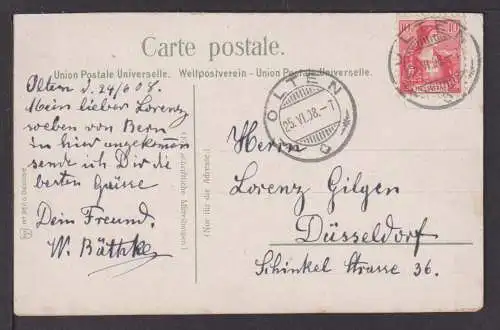 Carte postale.
Union Postale Universelle. Weltpostverein - Union Postale Universelle.
Olten d. 24/6 08.
Mein lieber Lorenz
soeben von Bern
in hier angekommen
sende ich Dir die
besten Grüsse
Dein Freund.
W. Bäthke
(Nur für die Adresse)
OLTEN
25.VI.08.-7
10
10
HELVETIA
Herrn
Lorenz Gilgen
Düsseldorf
Schinkel Strasse 36.